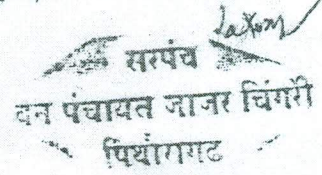 सरपंच
वन पंचायत जाजर चिंगरी
पिथौरागढ